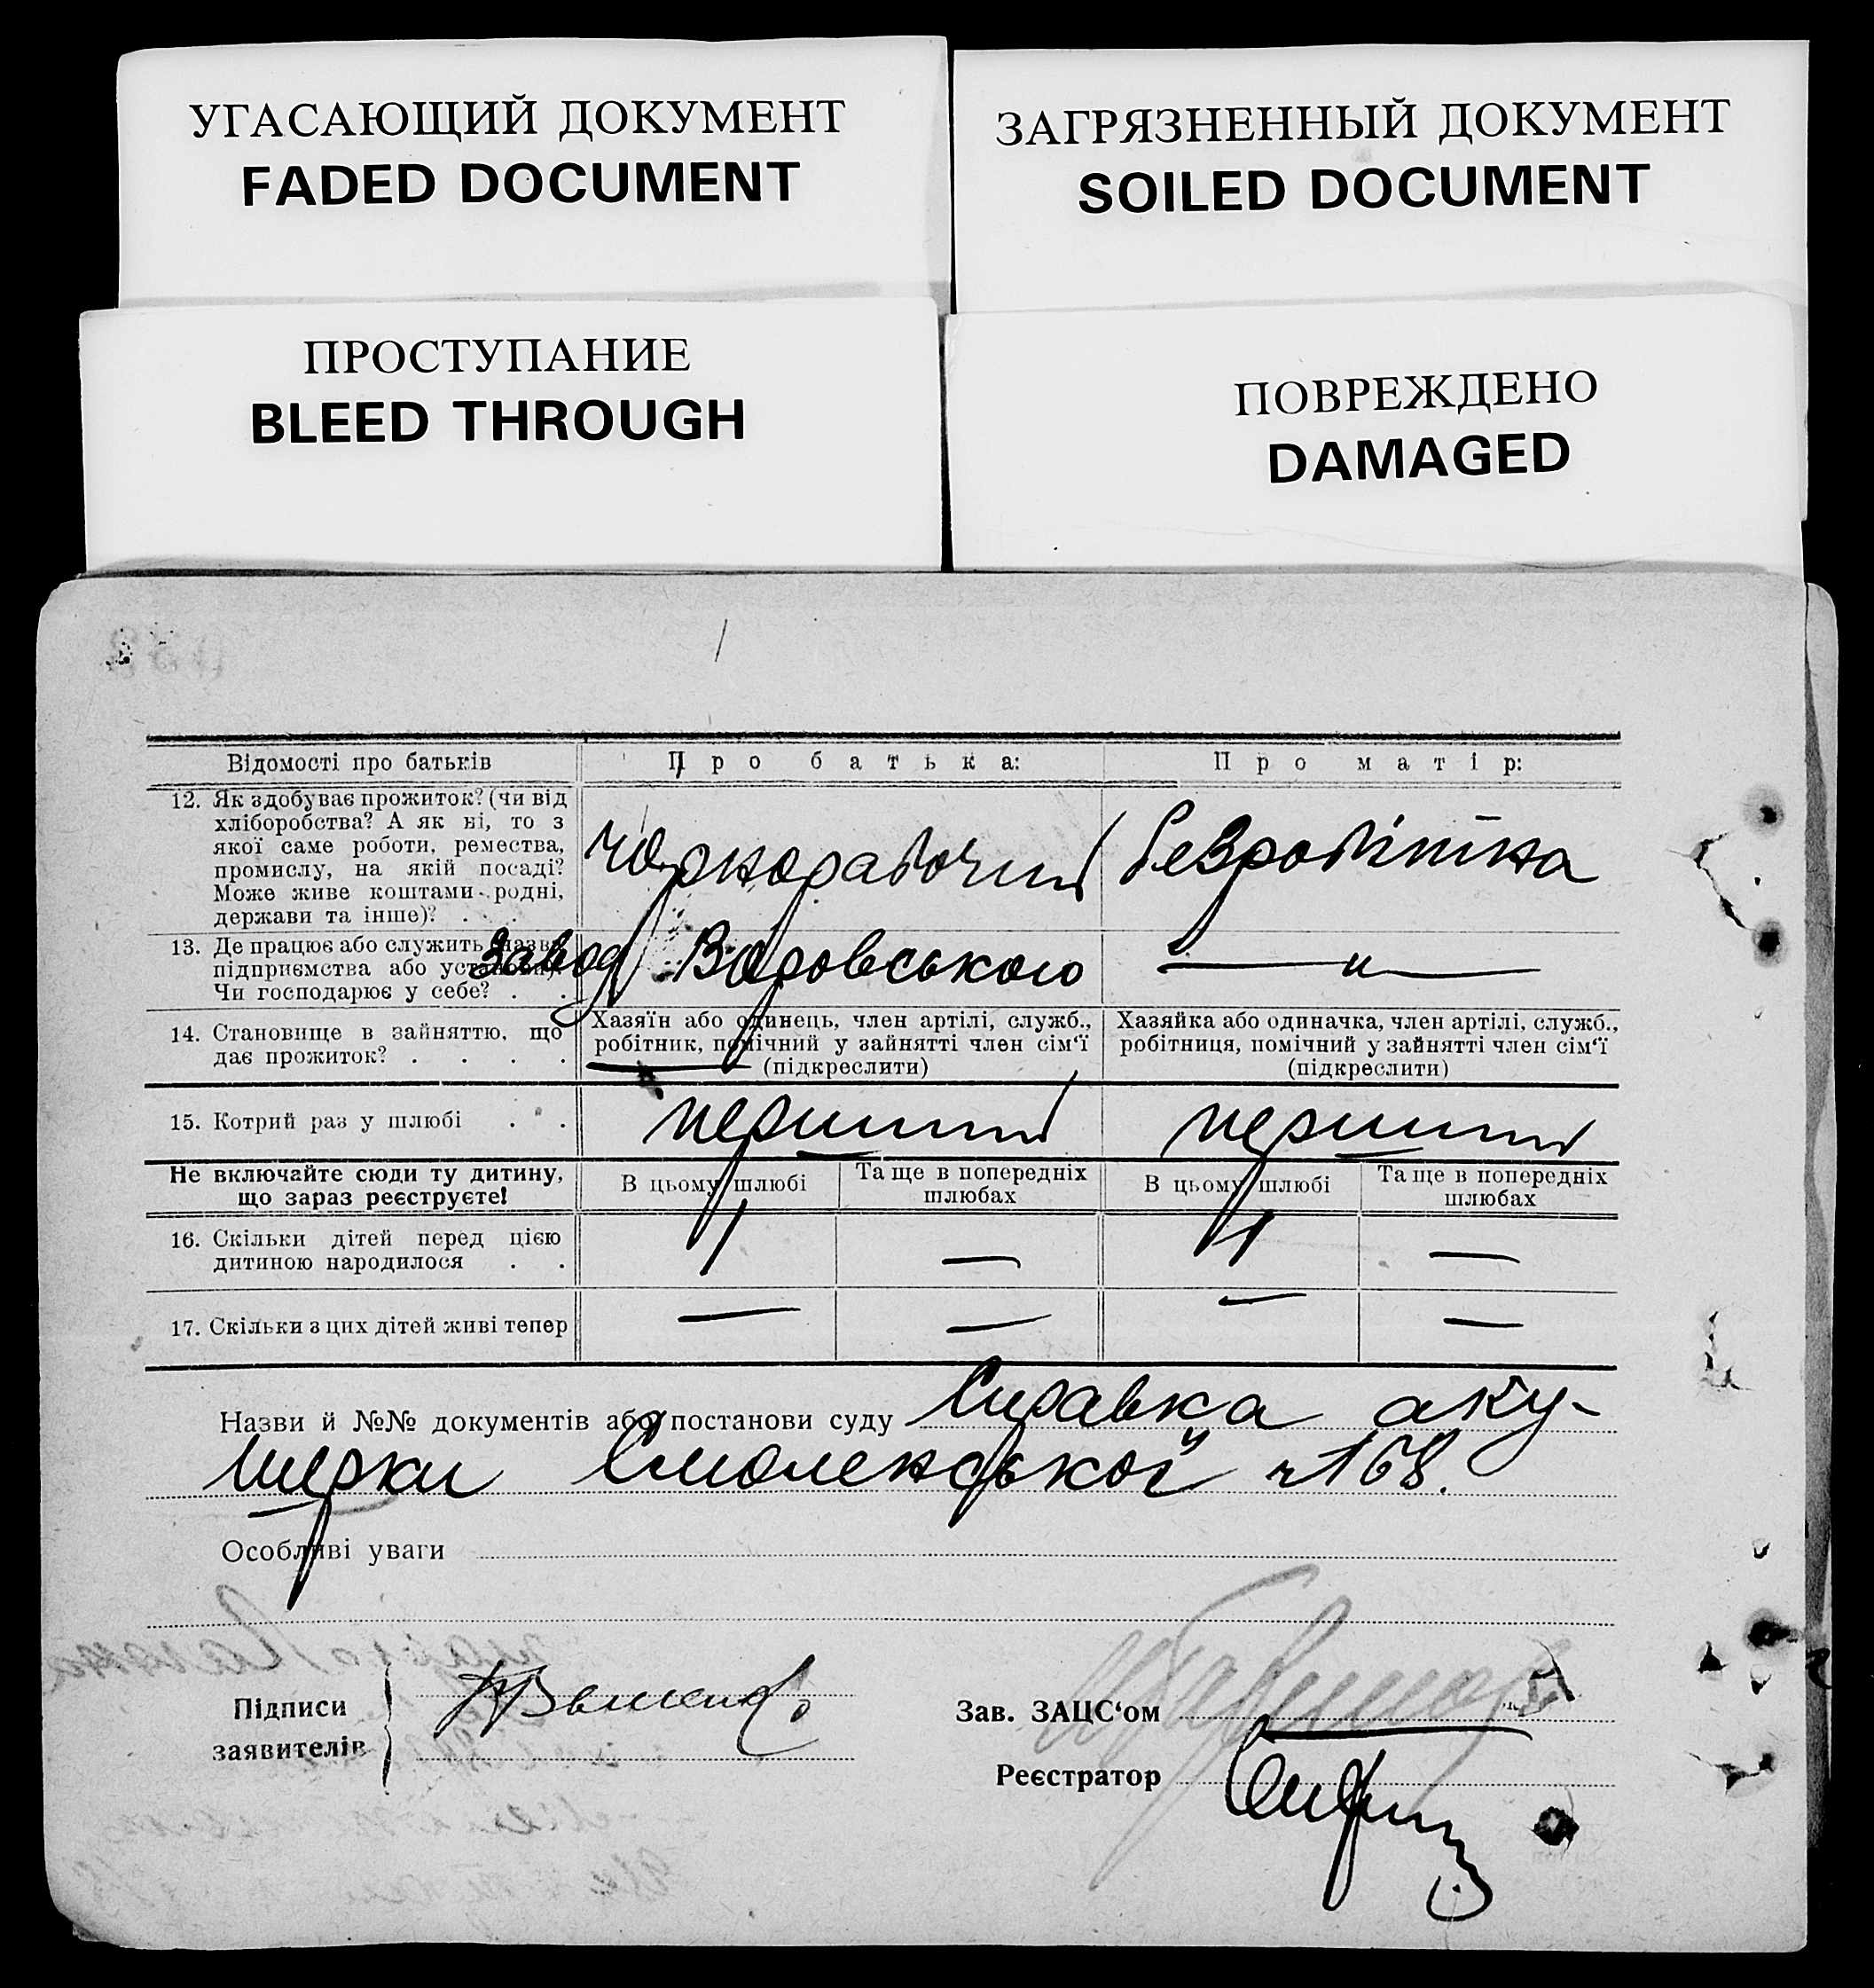 УГАСАЮЩИЙ ДОКУМЕНТ
FADED DOCUMENT
ЗАГРЯЗНЕННЫЙ ДОКУМЕНТ
SOILED DOCUMENT
ПРОСТУПАНИЕ
BLEED THROUGH
ПОВРЕЖДЕНО
DAMAGED
Відомості про батьків
Про батька:
Про матір:
12. Як здобуває прожиток? (чи від
хліборобства? А як ні, то з
якої саме роботи, ремества,
промислу, на якій посаді?
Може живе коштами родні,
держави та інше)? . . .
Чорнорабочий
безробітна
13. Де працює або служить (назва
підприємства або установи)?
Чи господарює у себе? . .
Завод Воровського
— " —
14. Становище в зайняттю, що
дає прожиток? . . . .
Хазяїн або одинець, член артілі, служб.,
робітник, помічний у зайнятті член сім'ї
(підкреслити)
Хазяйка або одиначка, член артілі, служб.,
робітниця, помічний у зайнятті член сім'ї
(підкреслити)
15. Котрий раз у шлюбі . .
перший
перший
Не включайте сюди ту дитину,
що зараз реєструєте!
В цьому шлюбі
Та ще в попередніх
шлюбах
В цьому шлюбі
Та ще в попередніх
шлюбах
16. Скільки дітей перед цією
дитиною народилося . .
1
—
1
—
17. Скільки з цих дітей живі тепер
—
—
—
—
Назви й №№ документів або постанови суду Справка аку-
шерки Смоленської №168.
Особливі уваги
Підписи
заявителів
Зав. ЗАЦС'ом
Реєстратор